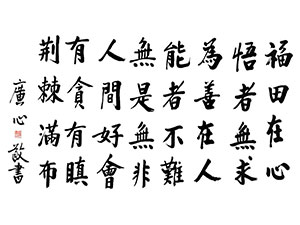 福田在心
悟者無求
為善在人
能者不難
無是無非
人間好會
有貪有瞋
荆棘滿布
廣心敬書